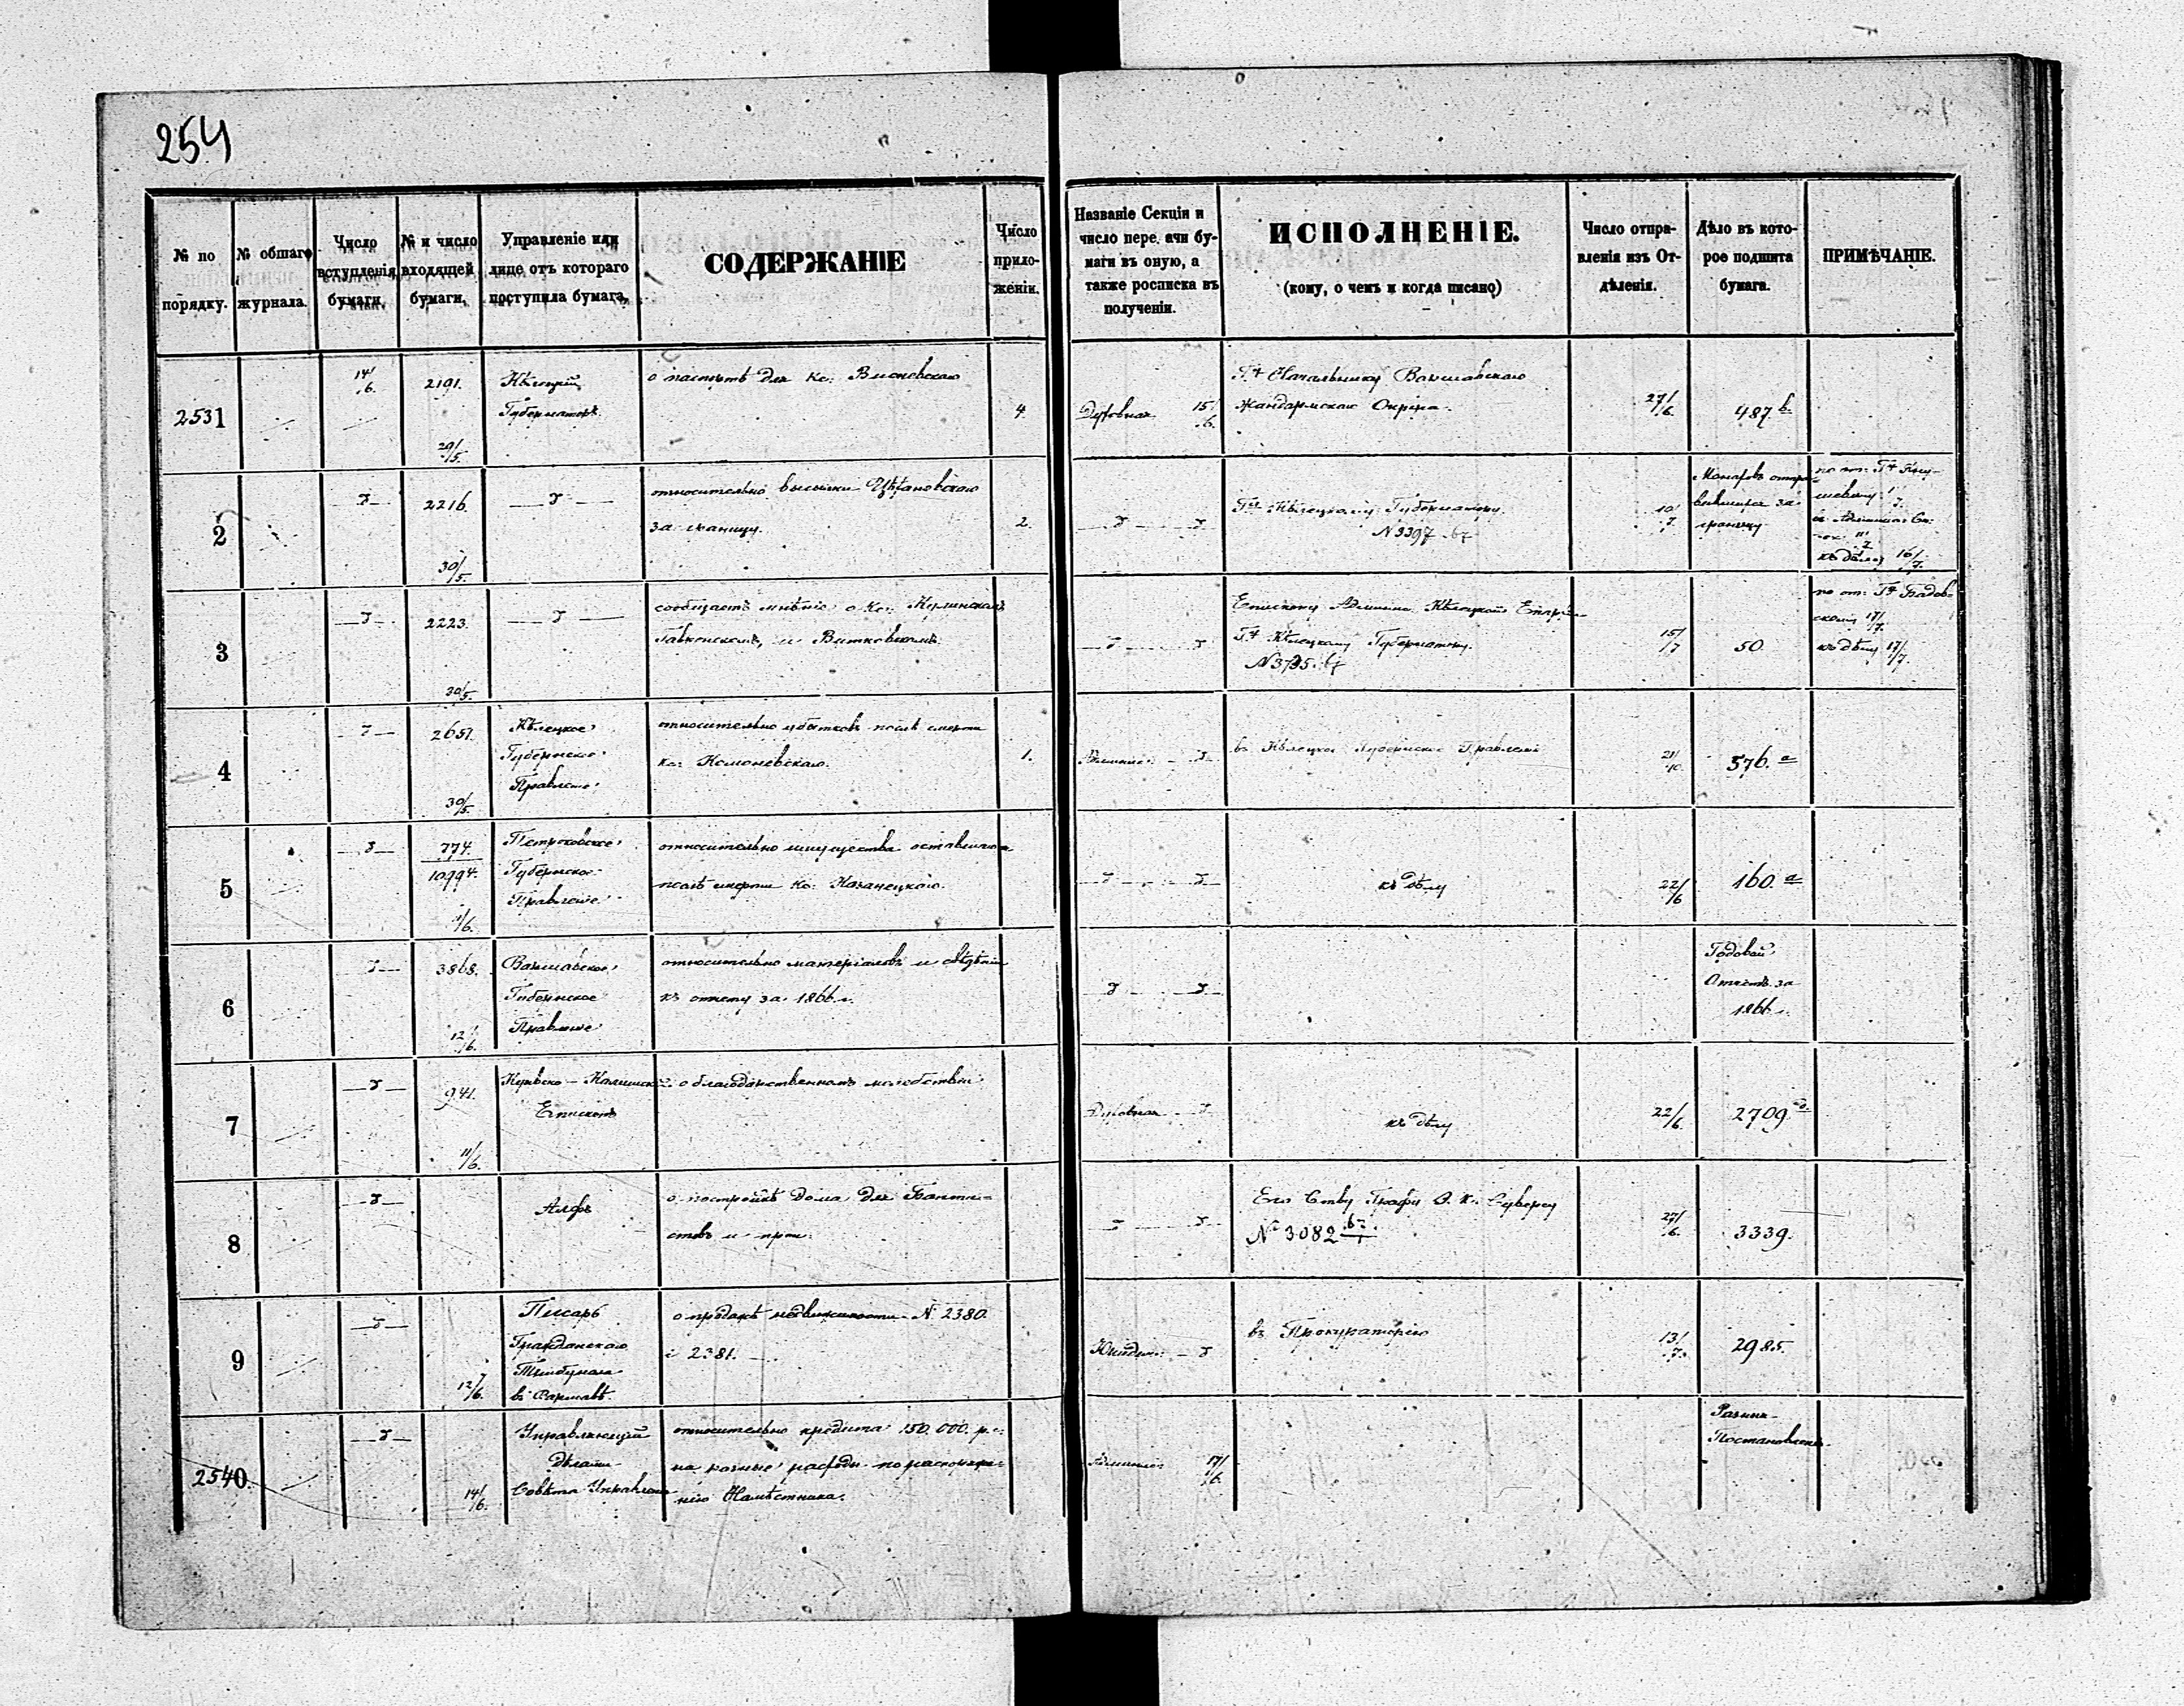 254
№ по порядку.
№ общаго журнала.
Число вступленія бумаги.
№ и число входящей бумаги.
Управленіе или лице отъ котораго поступила бумага.
СОДЕРЖАНІЕ
Число приложеніи.
Названіе Секціи и число передачи бумаги въ оную, а также росписка въ полученіи.
ИСПОЛНЕНІЕ.
(кому, о чемъ и когда писано)
Число отправленія изъ Отдѣленія.
Дѣло въ которое подшита бумага.
ПРИМѢЧАНІЕ.
2531
14/6.
2191.
29/5.
Кѣлецкій
Губернаторъ.
о паспортѣ для Кс:
4
Духовная 15/6.
Гну Начальнику Варшавскаго
Жандармскаго Округа.
27/6.
487.b
2
2216.
30/5.
относительно высылки
за границу.
2.
Гну Кѣлецкому Губернатору
N 3397
10/7.
за
границу
къ дѣлу 16/7.
3
2223.
30/5.
сообщаетъ мнѣніе о Кс:
и Витковскомъ.
Епископу Админ. Кѣлецкой Епархіи
Гну Кѣлецкому Губернатору.
N 3735.
15/7
50.
17/7.
къ дѣлу 17/7.
4
2651.
30/5.
Кѣлецкое
Губернское
Правленіе
относительно убытковъ послѣ смерти
кс: Комоневскаго.
1.
въ Кѣлецкое Губернское Правленіе
21/10.
576.a
5
774.
10994.
1/6.
Петроковское
Губернское
Правленіе
относительно имущества оставшагося
послѣ смерти Кс: Казанецкаго.
къ дѣлу
22/6
160.a
6
3868.
12/6.
Варшавское
Губернское
Правленіе
относительно матеріаловъ и свѣдѣній
къ отчету за 1866 г.
Годовой
Отчетъ за
1866 г.
7
941.
11/6.
Куявско-Калишскій
Епископъ
о благодарственномъ молебствіи
Духовная
къ дѣлу
22/6.
2709.
8
о постройкѣ дома для Баптистовъ
и проч.
Его Ству Графу Э. К. Сиверсу
№ 3082
27/6.
3339.
9
12/6.
Писарь
Гражданскаго
Трибунала
въ Варшавѣ.
о продажѣ недвижимости N 2380.
и 2381.
Юридич:
въ Прокураторію
13/7.
2985.
2540.
14/6.
Управляющій
дѣлами
Совѣта Управленія
относительно кредита 150.000. р.с.
на разные расходы по распоряженію
Намѣстника.
17/6.
Постановленія